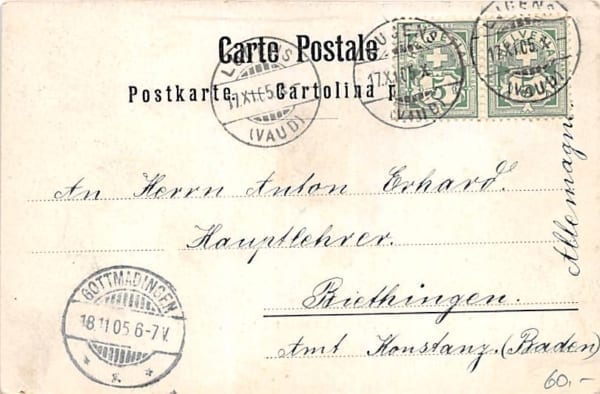 Carte Postale
Postkarte. Cartolina
17.XI.05
(VAUD)
17.XI.05
(VAUD)
HELVETIA
5
17.XI.05
(VAUD)
An Herrn Anton Erhard.
Hauptlehrer.
Biethingen.
Amt Konstanz. (Baden)
Allemagne.
GOTTMADINGEN
18.11.05.6-7V.
60.-